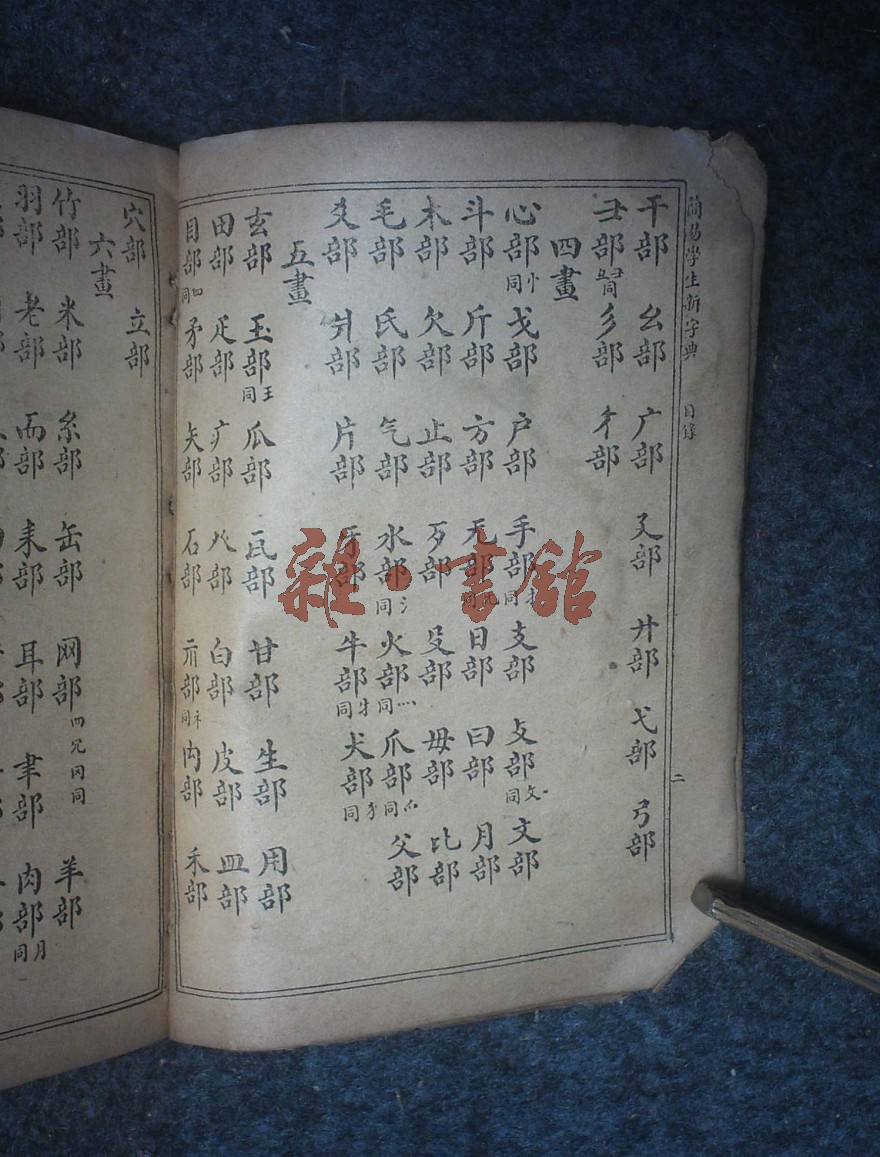 簡易學生新字典 目錄 二
干部 幺部 广部 廴部 廾部 弋部 弓部
彐部 彑同 彡部 彳部
四畫
心部 忄同 戈部 户部 手部 扌同 支部 攴部 攵同 文部
斗部 斤部 方部 无部 旡同 日部 曰部 月部
木部 欠部 止部 歹部 殳部 毋部 比部
毛部 氏部 气部 水部 氵同 火部 灬同 爪部 爫同 父部
爻部 爿部 片部 牙部 牛部 牜同 犬部 犭同
五畫
玄部 玉部 王同 瓜部 瓦部 甘部 生部 用部
田部 疋部 疒部 癶部 白部 皮部 皿部
目部 罒同 矛部 矢部 石部 示部 礻同 禸部 禾部
穴部 立部
六畫
竹部 米部 糸部 缶部 网部 罒㓁冈同 羊部
羽部 老部 而部 耒部 耳部 聿部 肉部 月同
雜·書館